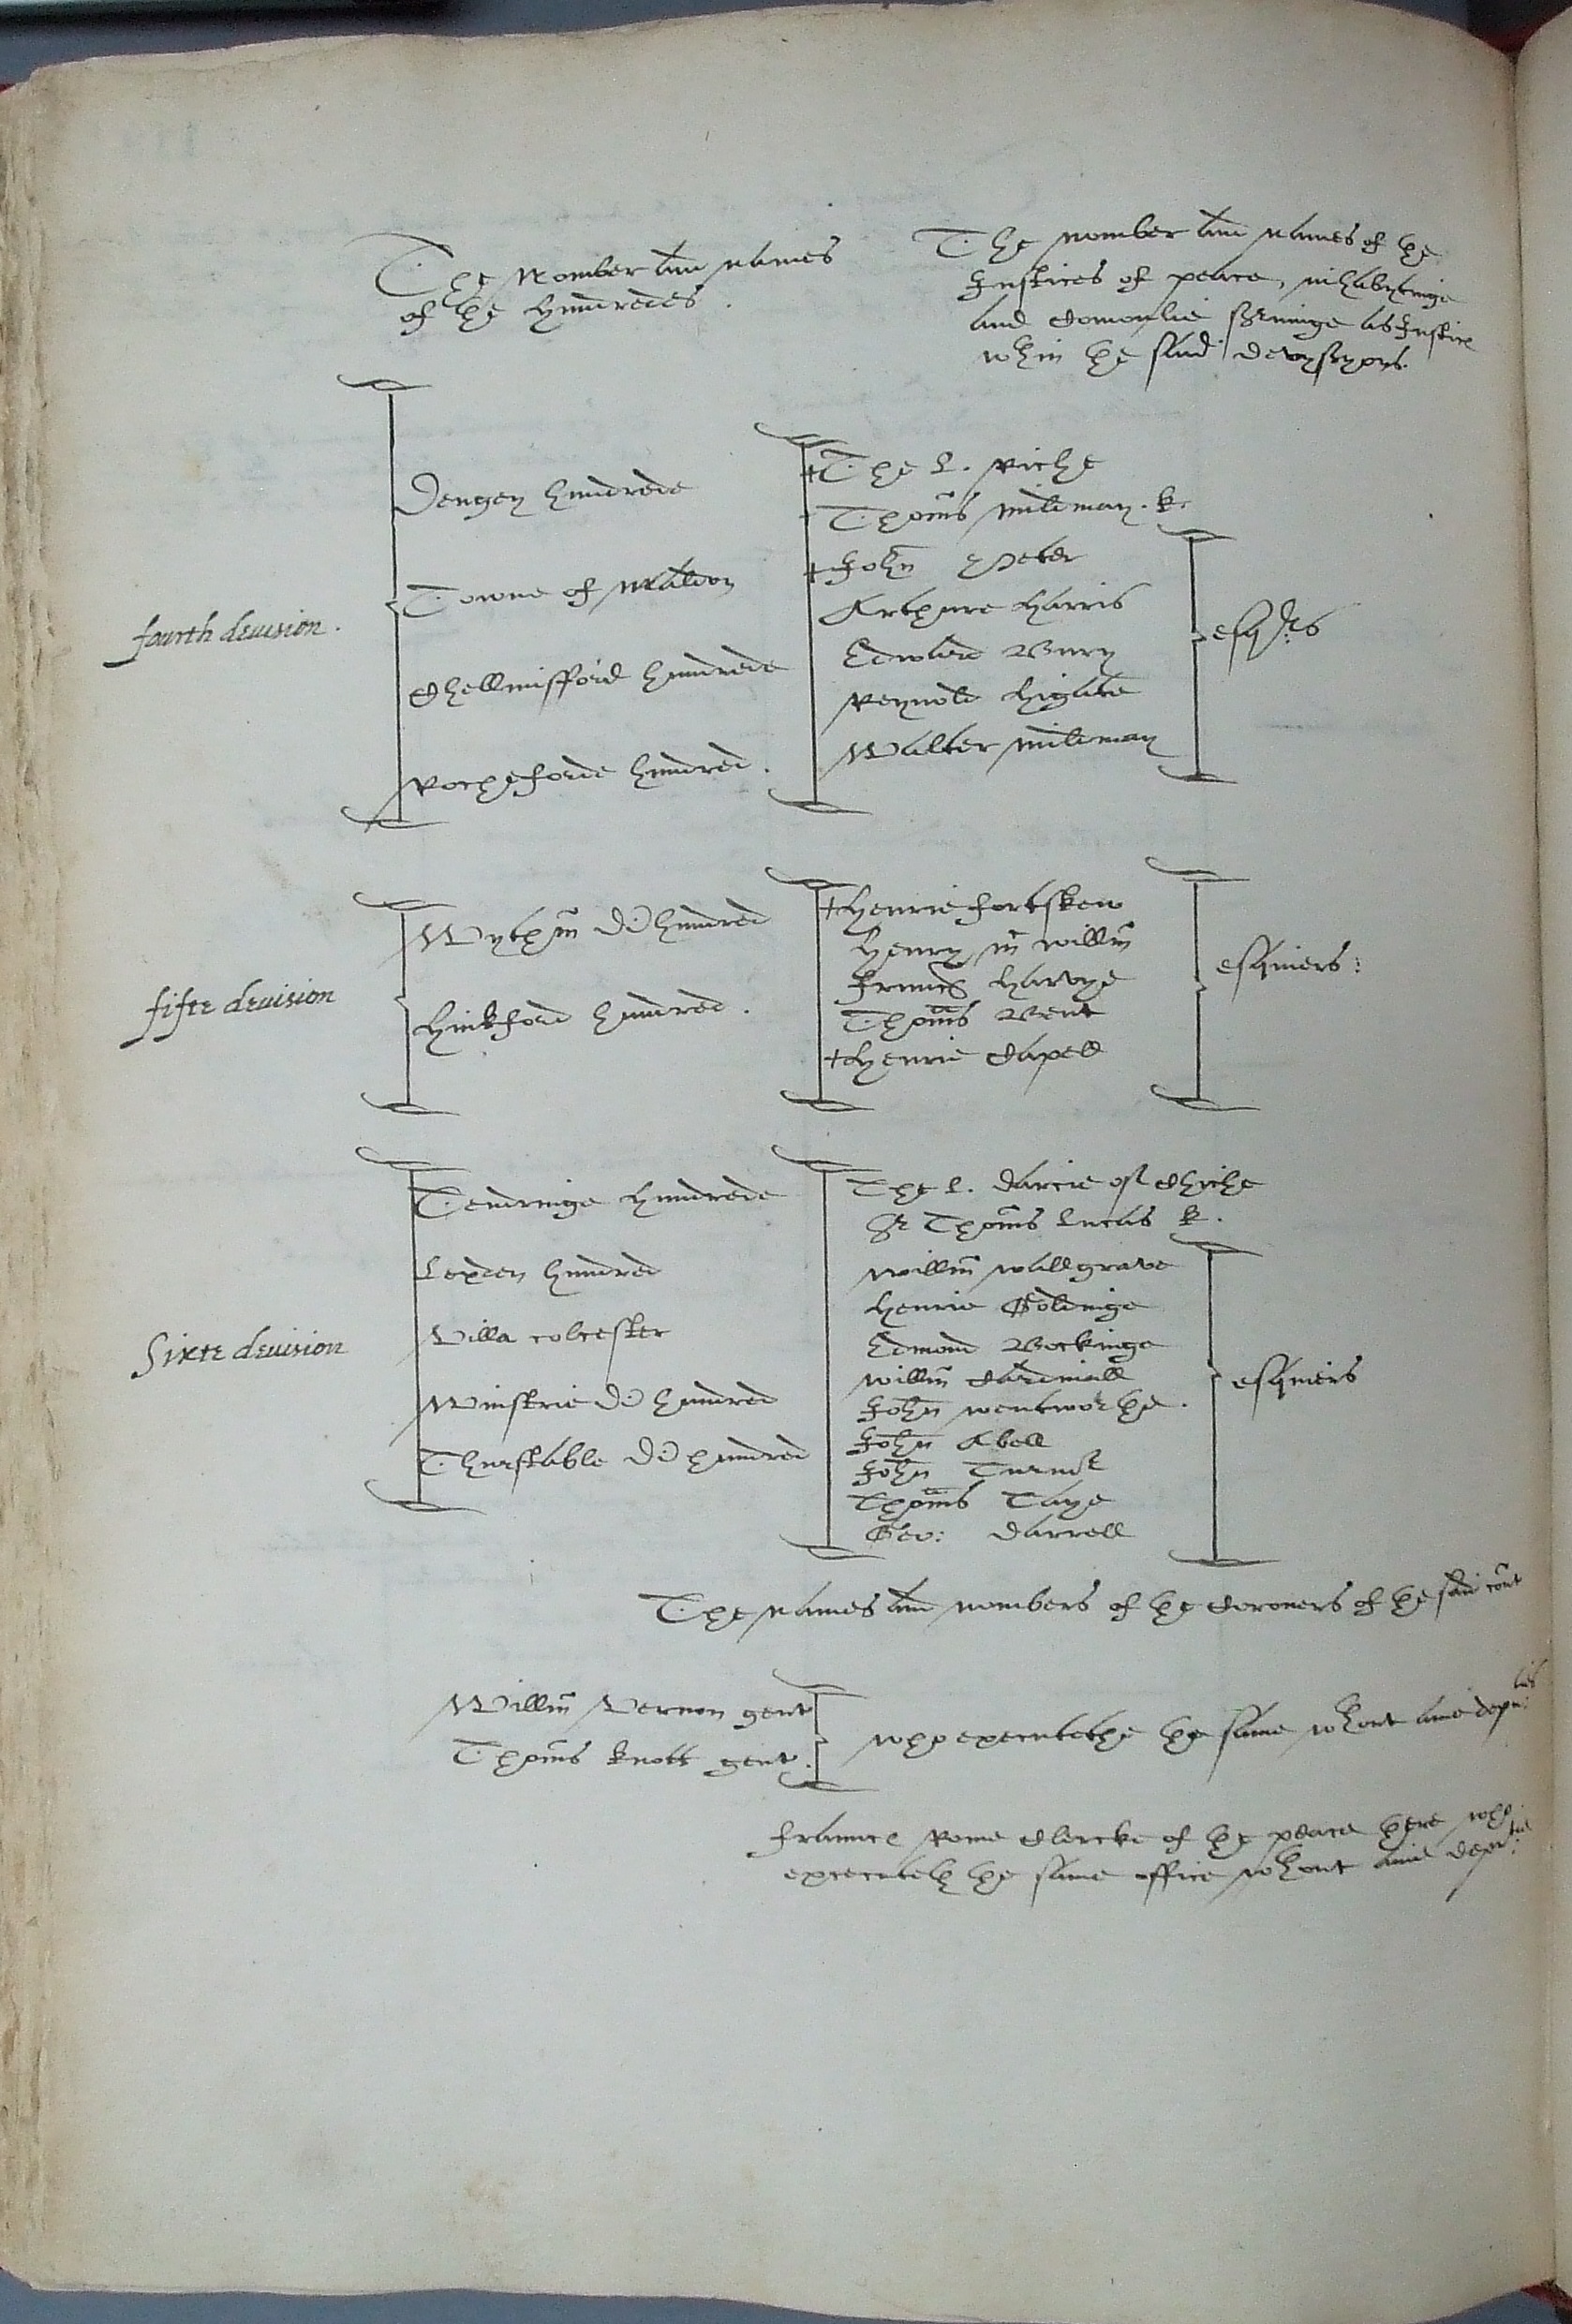 The Nomber and names
of the hundredes.
The nomber and names of the
Justices of peace, inhabytinge
and comonlie servinge as Justice
wthin the said devysyons.
fourth deuision.
Dengey hundrede
Towne of Maldon
Chellmisford hundrede
Rocheforde hundred.
+The L. Riche
Thoms mildmay. k.
+John Peter
Arthure Harris
Edward Bury
Reynold Higate
Walter mildmay
esqrs
fifte deuision
Wythm Di hundred
Hinkford hundred.
+Henrie fortskew
Henry m willm
Francis Harvye
Thoms Bent
+Henrie Capell
esquiers:
Sixte deuision
Tendringe hundrede
Lexden hundred
Villa colcester
Winstrie Di hundred
Thurstable Di hundred
The L. Darcie of Chiche
Sr Thoms Lucas k.
willm wallgrave
Henrie Goldinge
Edmond Bockinge
willm Cardinall
John wentworthe.
John Abell
John Turnor
Thoms Taye
Geo: Darrell
esquiers
The names and nombers of the Coroners of the said count
Willm Vernon gent
Thoms Knott gent.
who executethe the same wthout anie deputies
Fraunce Rome Clercke of the peace there who
executeth the same office wthout anie deputie